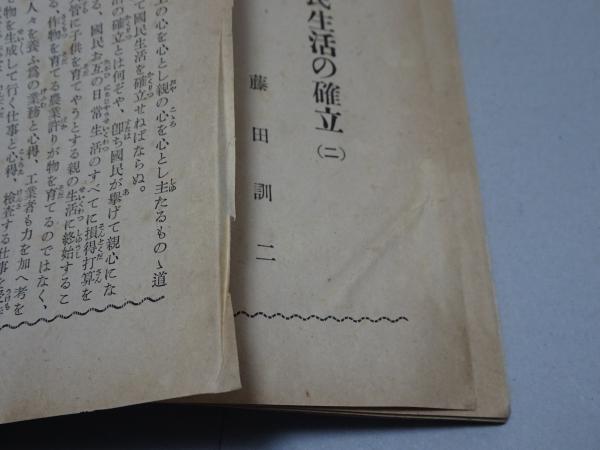 民生活の確立(二)
藤田訓二
の心を心とし親の心を心とし主たるものゝ道
て國民生活を確立せねばならぬ。
活の確立とは何ぞや、卽ち國民が擧げて親心にな
る、國民お互の日常生活のすべてに損得打算を
管に子供を育てやうとする親の生活に終始するこ
る。作物を育てる農業許りが物を育てるのではなく、
人々を養ふ爲の業務と心得、工業者も力を加へ考を
て物を生成して行く仕事と心得、檢査する仕事を